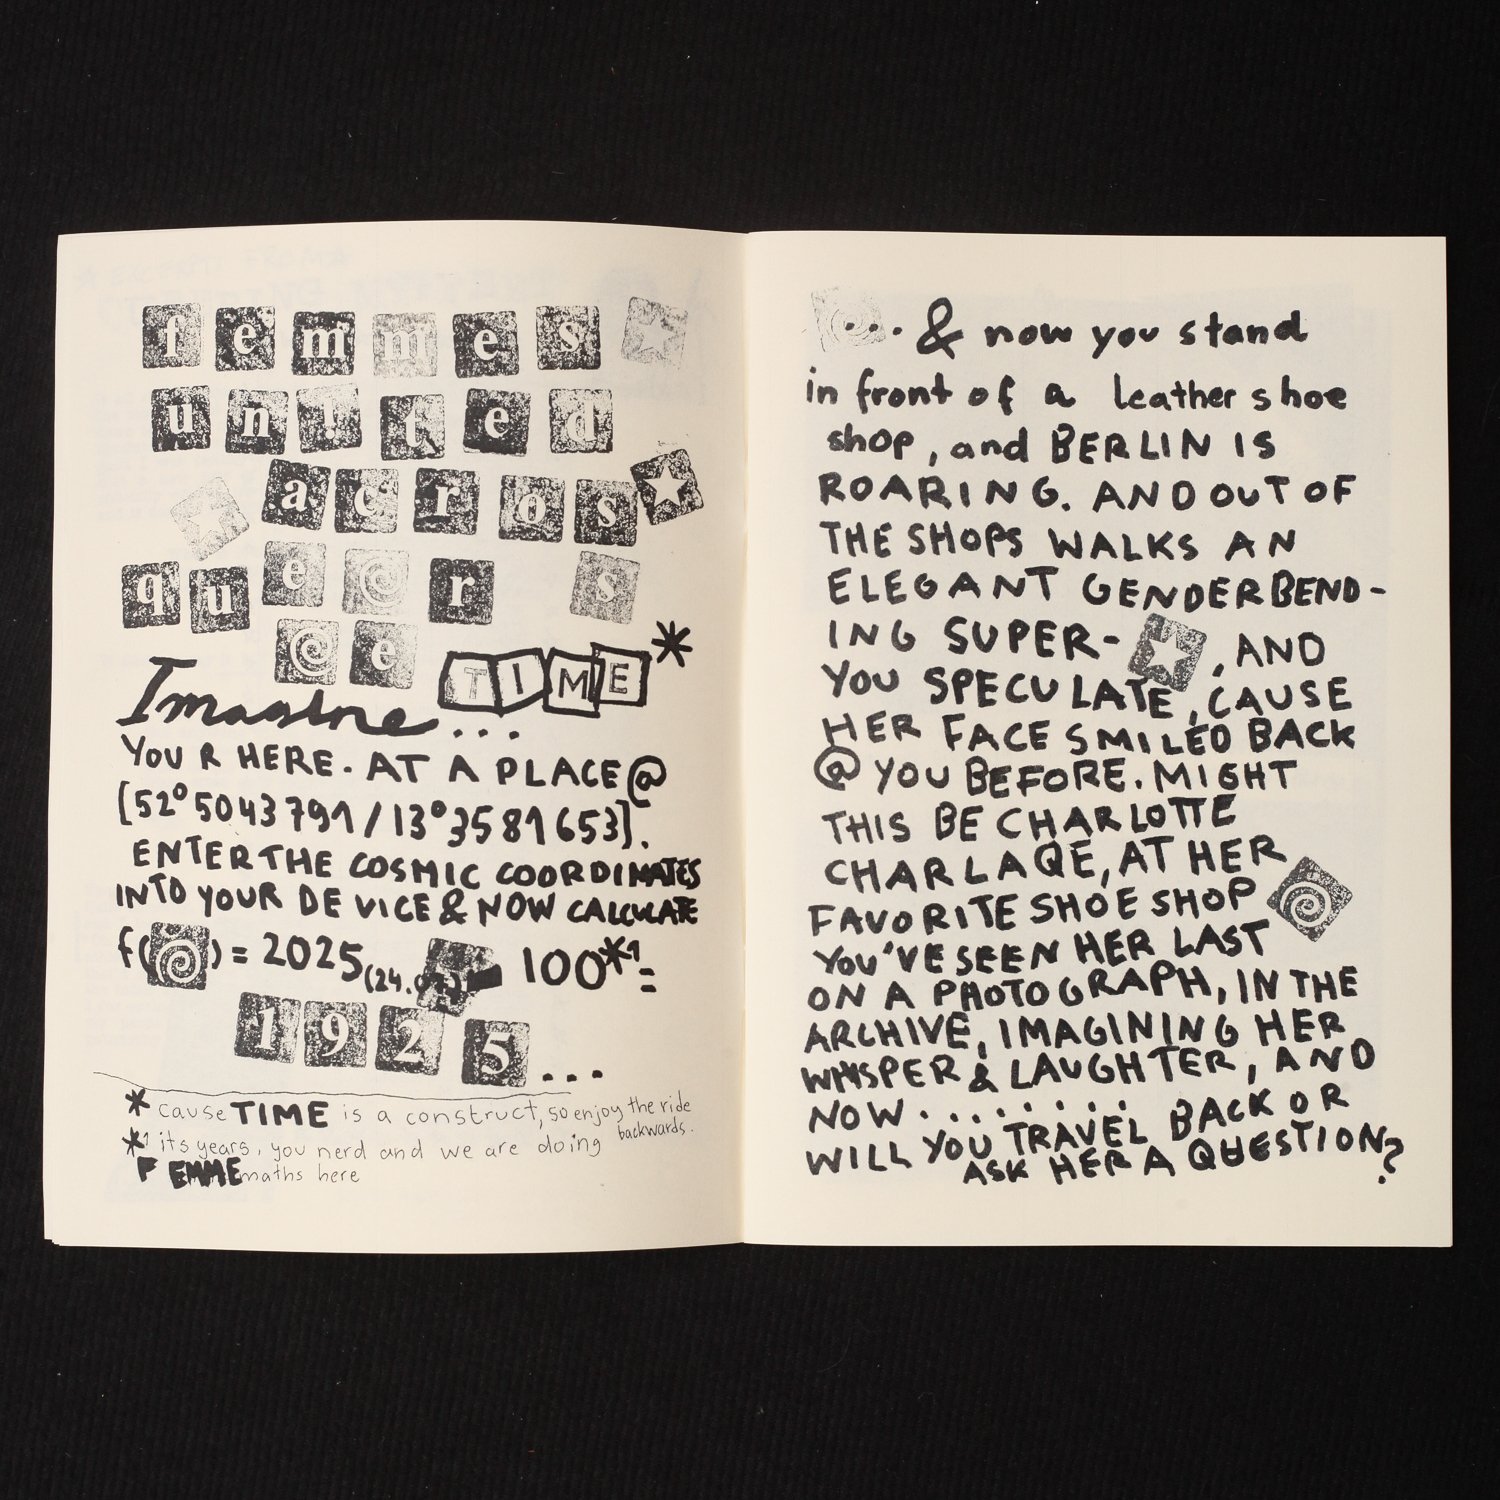 femmes
un!ted
across
queer s
ce TIME*
Imagine...
YOU R HERE. AT A PLACE @
[52°5043791/13°3581653].
ENTER THE COSMIC COORDINATES
INTO YOUR DEVICE & NOW CALCULATE
f( ) = 2025 100*¹=
1925...
* cause TIME is a construct, so enjoy the ride
backwards.
*¹ its years, you nerd and we are doing
FEMME maths here
... & now you stand
in front of a leather shoe
shop, and BERLIN IS
ROARING. AND OUT OF
THE SHOPS WALKS AN
ELEGANT GENDERBEND-
ING SUPER- , AND
YOU SPECULATE, CAUSE
HER FACE SMILED BACK
@ YOU BEFORE. MIGHT
THIS BE CHARLOTTE
CHARLAQE, AT HER
FAVORITE SHOE SHOP
YOU'VE SEEN HER LAST
ON A PHOTOGRAPH, IN THE
ARCHIVE, IMAGINING HER
WHISPER & LAUGHTER, AND
NOW.........
WILL YOU TRAVEL BACK OR
ASK HER A QUESTION?